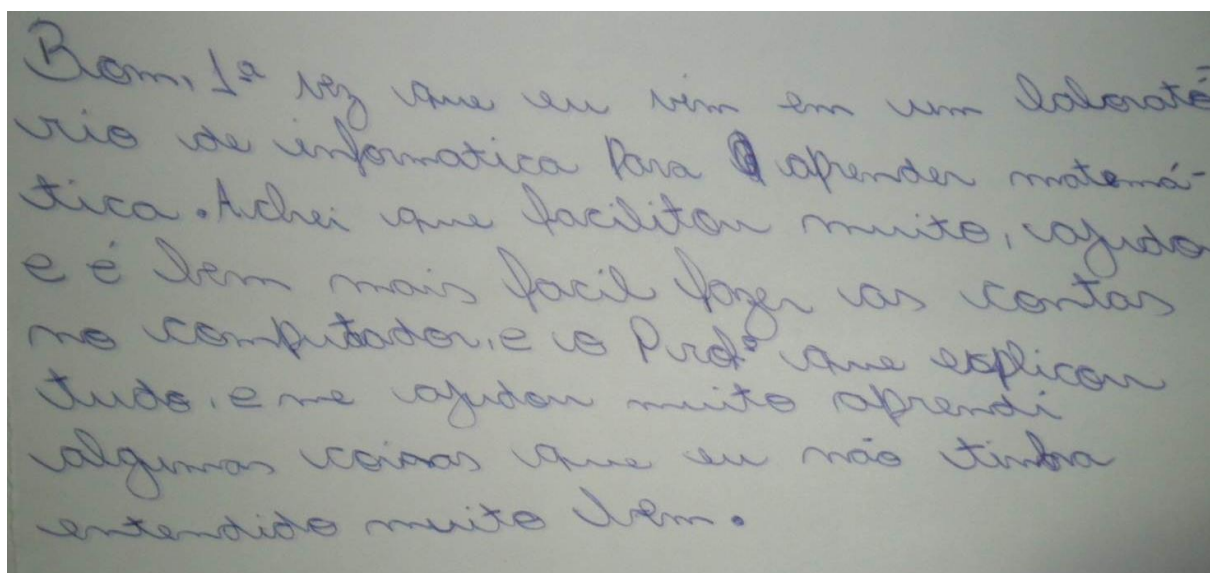 Bom, 1ª vez que eu vim em um laborató
rio de informatica Para aprender matemá-
tica. Achei que facilitou muito, ajudo
e é bem mais facil fazer as contas
no computador, e o Profº que explicou
tudo, e me ajudou muito aprendi
algumas coisas que eu não tinha
entendido muito bem.